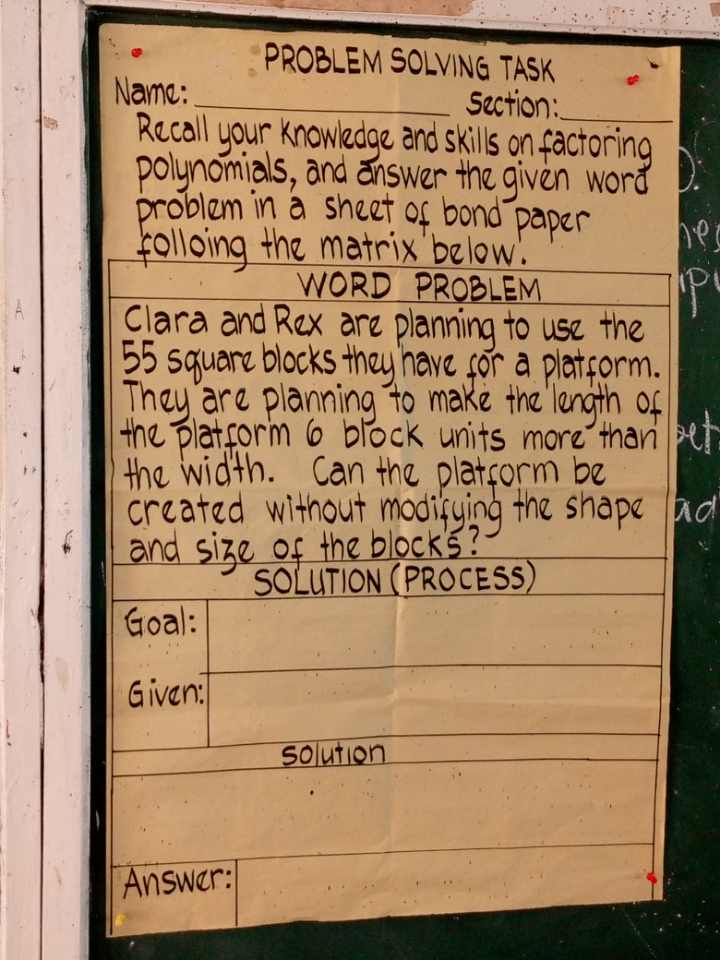 PROBLEM SOLVING TASK
Name: Section:
Recall your knowledge and skills on factoring
polynomials, and answer the given word
problem in a sheet of bond paper
folloing the matrix below.
WORD PROBLEM
Clara and Rex are planning to use the
55 square blocks they have for a platform.
They are planning to make the length of
the platform 6 block units more than
the width. Can the platform be
created without modifying the shape
and size of the blocks?
SOLUTION (PROCESS)
Goal:
Given:
Solution
Answer: